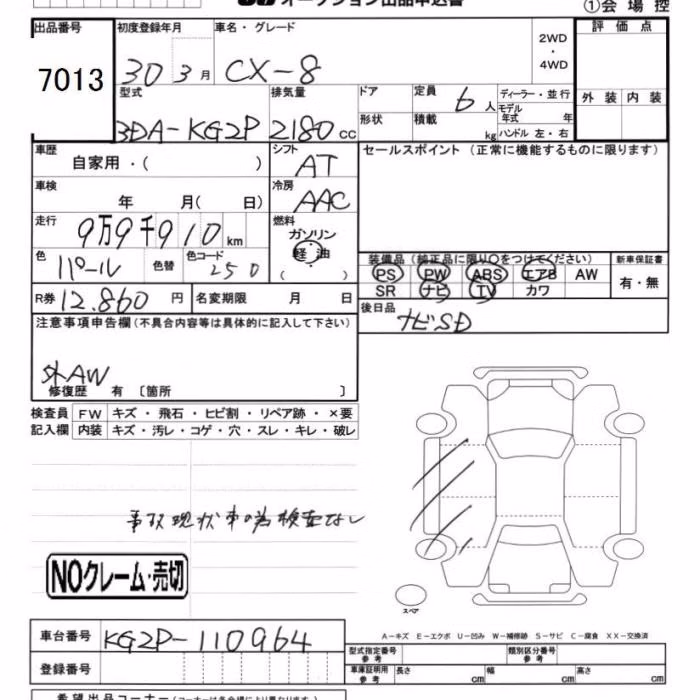 オークション出品申込書
①会場控
出品番号 初度登録年月 車名・グレード 2WD・4WD 評価点
7013 30 3月 CX-8
型式 排気量 ドア 定員 6人 ディーラー・並行 外装 内装
3DA-KG2P 2180cc 形状 積載 kg モデル年式 年 ハンドル 左・右
車歴 シフト セールスポイント (正常に機能するものに限ります)
自家用・( ) AT
車検 年 月( 日) 冷房 AAC
走行 9万9千910km 燃料 ガソリン
軽油
( )
色 パール 色替 色コード 25D
装備品 (純正品に限り○をつけてください) 新車保証書
PS PW ABS エアB AW 有・無
SR ナビ TV カワ
R券 12.860円 名変期限 月 日 後日品 ナビSD
注意事項申告欄(不具合内容等は具体的に記入して下さい)
外AW
修復歴 有 〔箇所 〕
検査員 FW キズ・飛石・ヒビ割・リペア跡・×要
記入欄 内装 キズ・汚レ・コゲ・穴・スレ・キレ・破レ
事故現状車の為検査なし
NOクレーム・売切
スペア
A-キズ E-エクボ U-凹み W-補修跡 S-サビ C-腐食 XX-交換済
車台番号 KG2P-110964
型式指定番号 参考 類別区分番号 参考
登録番号 車庫証明用 参考 長さ cm 幅 cm 高さ cm
希望出品コーナー